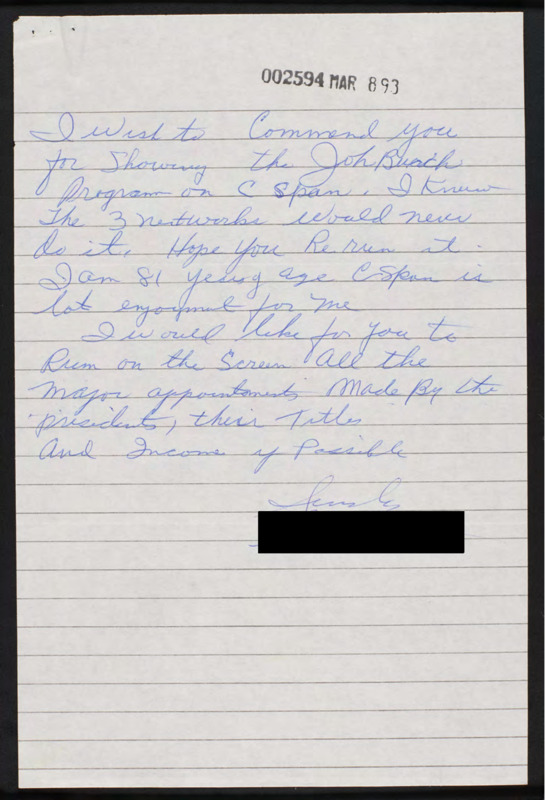 002594 MAR 8 93
I wish to Commend you
for Showing the Joh Burch
Program on C Span. I Knew
The 3 networks would never
do it. Hope you Re run it.
I am 81 years of age C-Span is
lot enjoyment for me
I would like for you to
Run on the Screen All the
major appointments Made By the
presidents, their Titles
And Income if Possible